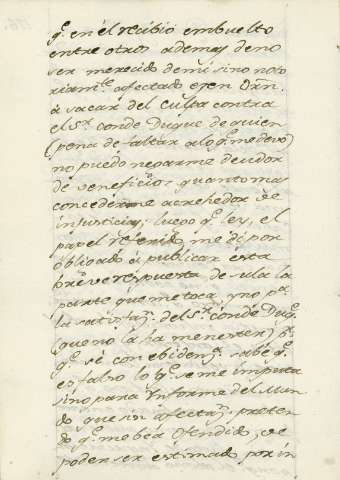 q.e en él recibio embuelto
entre otros ademas de no
ser merecido de mi sino noto
riam.te afectado es en Orn.
á sacar del culpa contra
el S.r conde Duque de quien
(pena de faltar a lo q.e me devo)
no puedo negarme deudor
de veneficios, quanto mas
concederme acrehedor de
injusticias; luego q.e ley, el
papel referido, me di por
obligado á publicar esta
breve respuesta, de sola la
parte que me toca, y no p.a
la satisfaz.n del S.r conde Duq.e
(que no la ha menester) p.s
q.e sé con evidenz.a sabe q.e
es falso lo q.e se me imputa
sino para Ynforme del Mun
do, que sin afectaz.n preten
do q.e me vea ofendido, de
poder ser estimado, por in